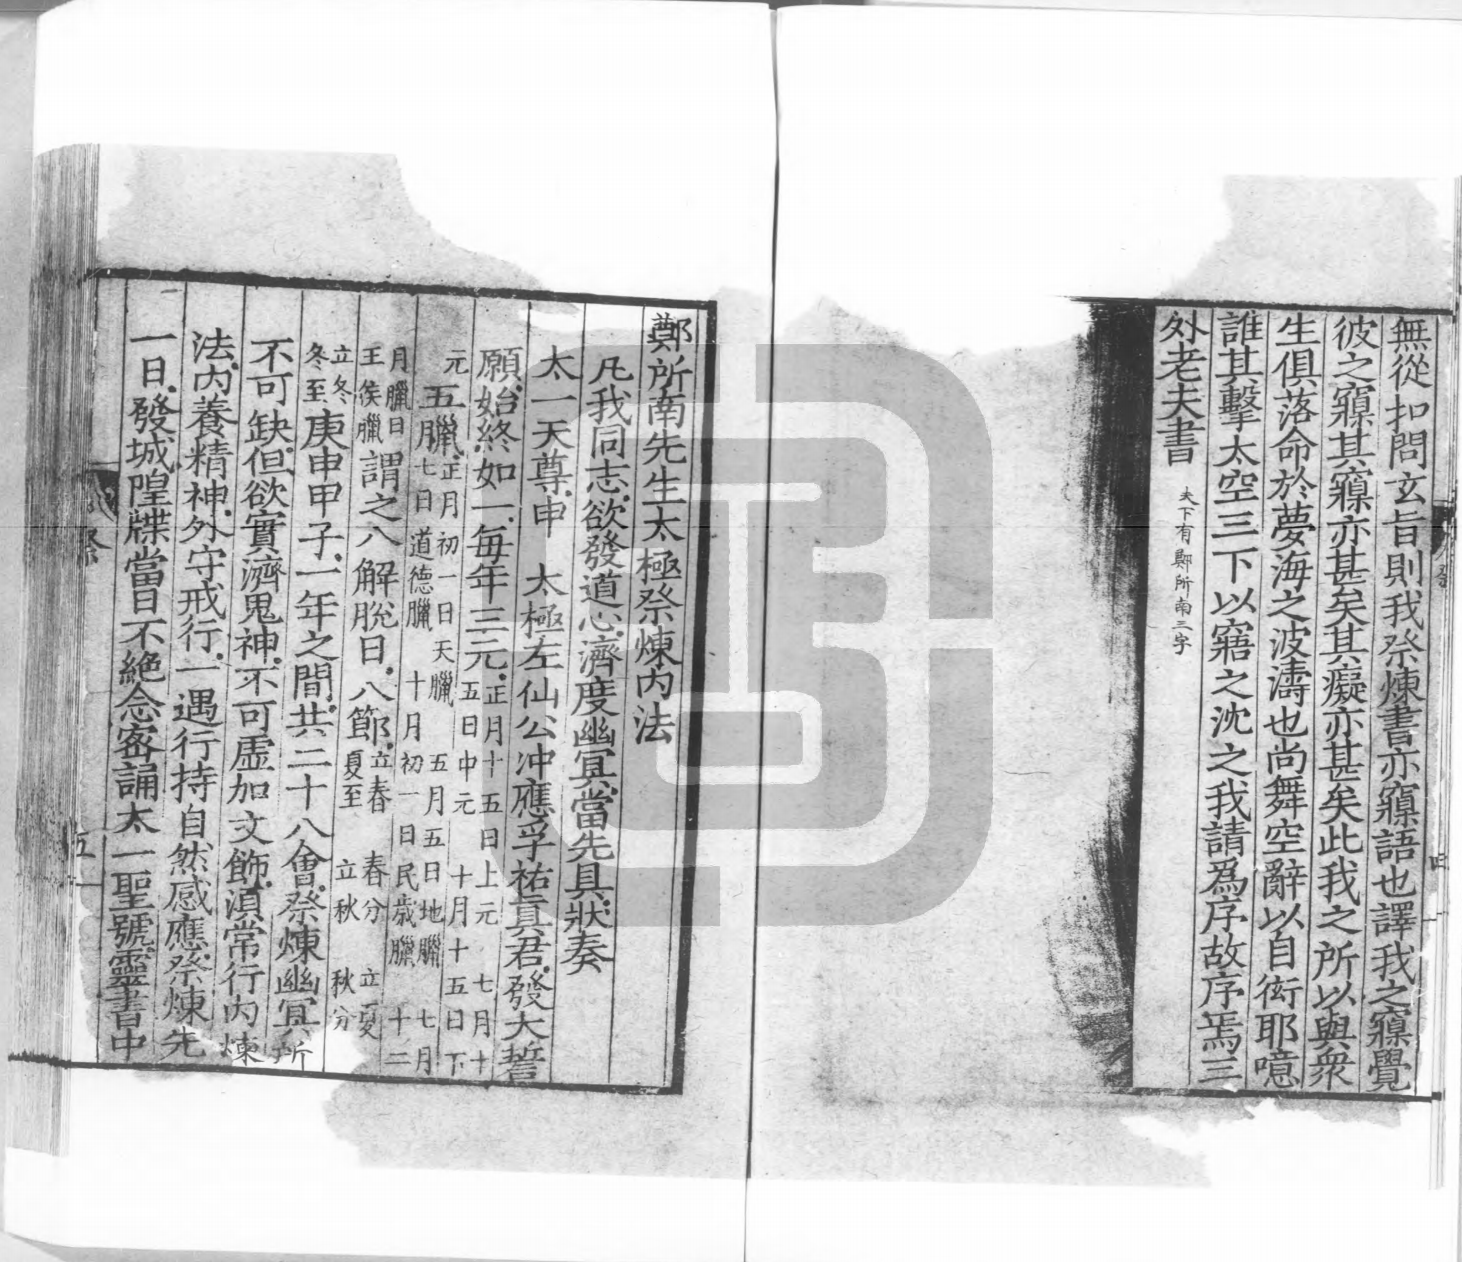 無從扣問玄旨則我祭煉書亦寱語也譯我之寱覺
彼之寱其寱亦甚矣其癡亦甚矣此我之所以與衆
生俱落命於夢海之波濤也尚舞空辭以自衒耶噫
誰其擊太空三下以寤之沈之我請為序故序焉三
外老夫書
夫下有鄭所南三字
四
鄭所南先生太極祭煉内法
凡我同志欲發道心濟度幽冥當先具狀奏
太一天尊申　太極左仙公冲應孚祐真君發大誓
願始終如一每年三元正月十五日上元　七月十
五日中元　十月十五日下
元五臘正月初一日天臘　五月五日地臘　七月
七日道德臘　十月初一日民歲臘　十二
月臘日王侯臘謂之八解脫日八節立春　春分　立夏
夏至　立秋　秋分
立冬冬至庚申甲子一年之間共二十八會祭煉幽冥所
不可缺但欲實濟鬼神不可虛加文飾湏常行内煉
法内養精神外守戒行一遇行持自然感應祭煉先
一日發城隍牒當日不絶念密誦太一聖號靈書中
祭
五